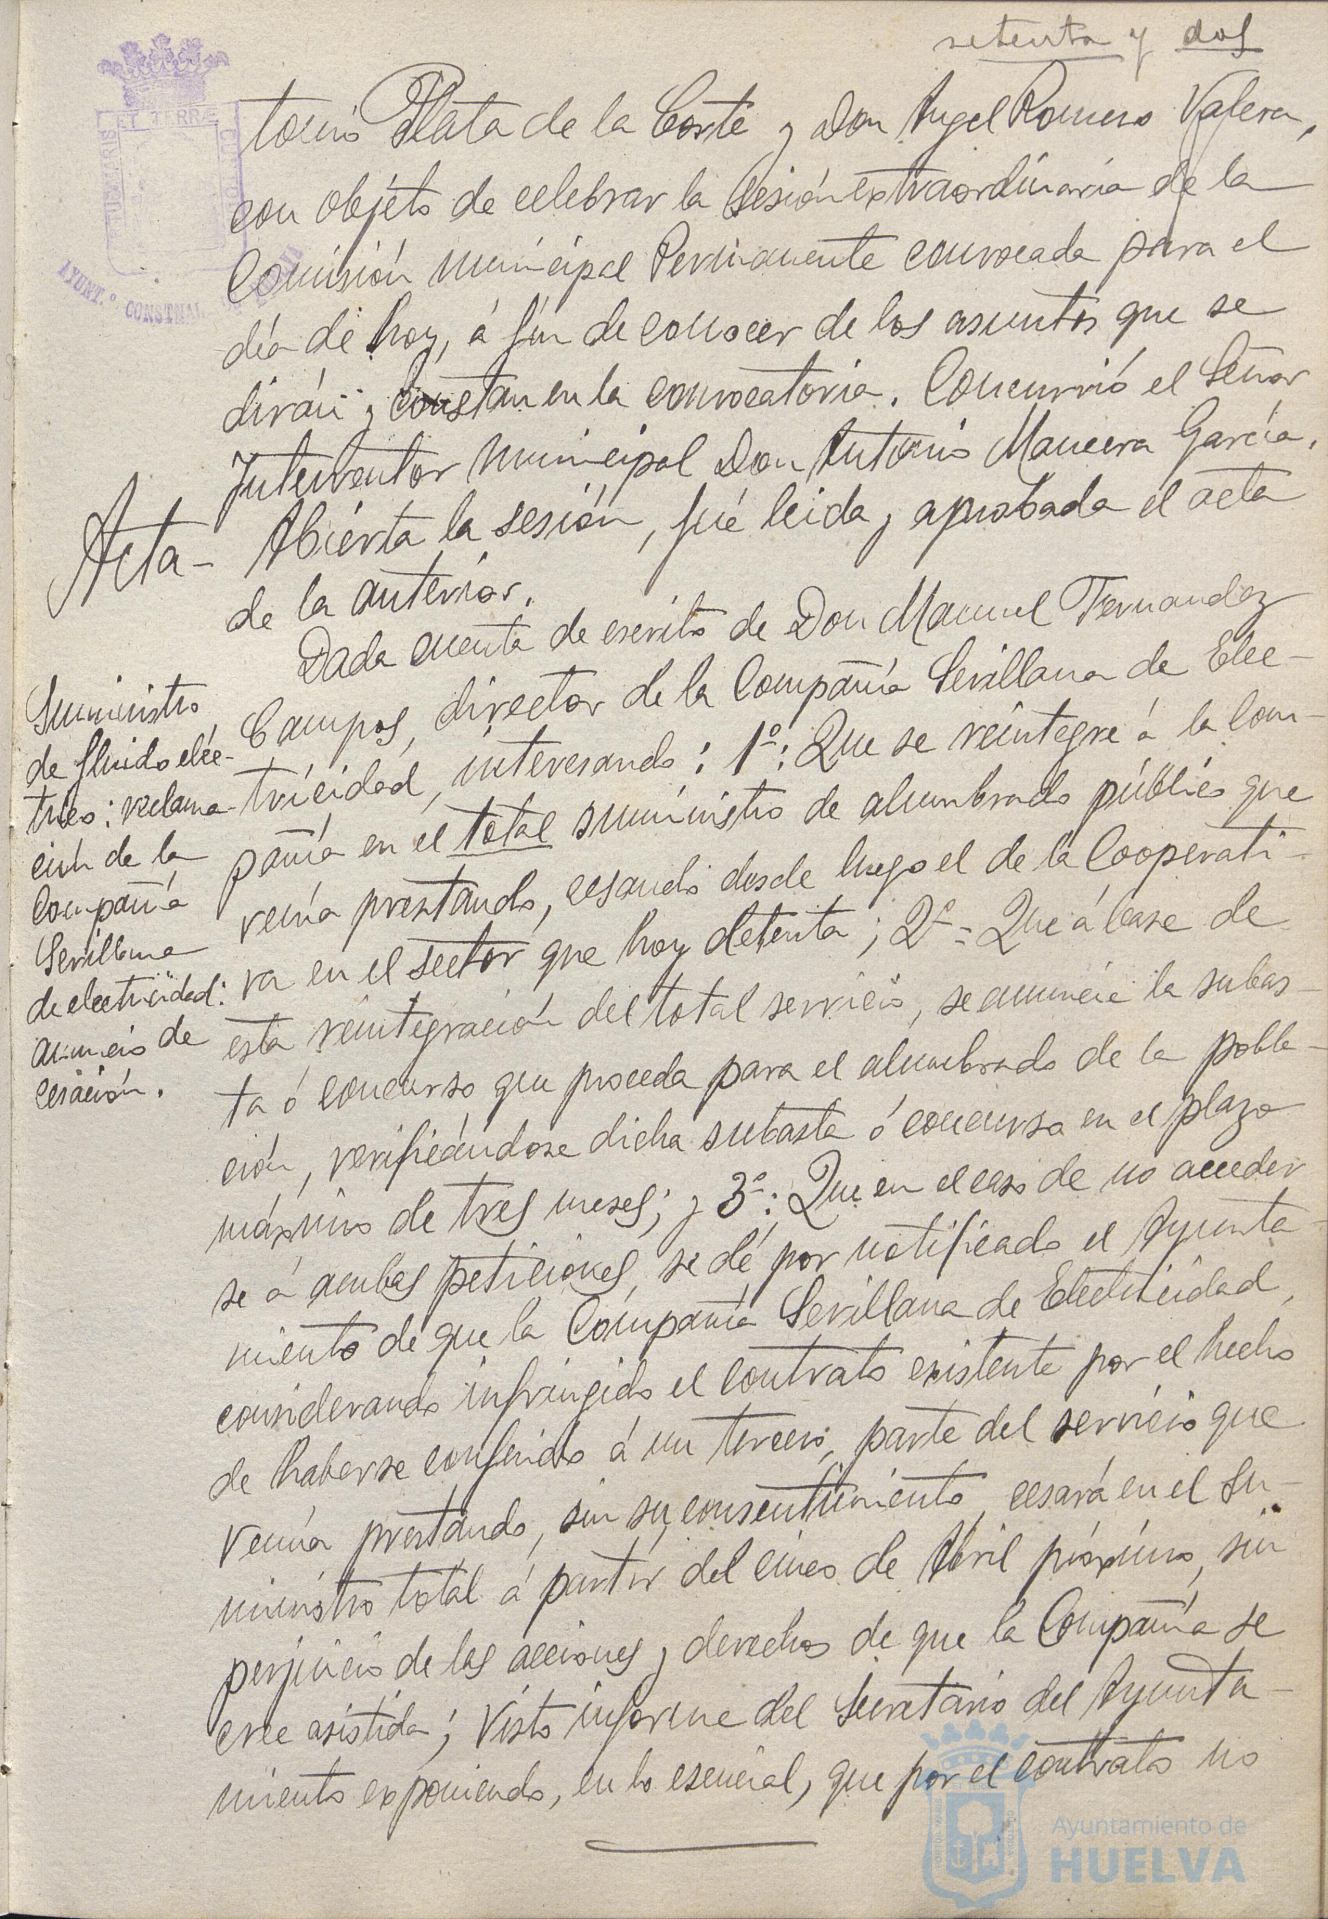 setenta y dos
tonio Plata de la Corte y Don Angel Romero Valera,
con objeto de celebrar la sesión extraordinaria de la
Comisión municipal Permanente convocada para el
día de hoy, á fin de conocer de los asuntos que se
dirán y constan en la convocatoria. Concurrió el Señor
Interventor municipal Don Antonio Mancera García.
Acta- Abierta la sesión, fué leida y aprobada el acta
de la anterior.
Dada cuenta de escrito de Don Manuel Fernandez
Campos, director de la Compañía Sevillana de Elec-
tricidad, interesando: 1º: Que se reintegre á la Com-
pañía en el total suministro de alumbrado público que
venía prestando, cesando desde luego el de la Cooperati-
va en el sector que hoy detenta; 2º = Que á base de
esta reintegración del total servicio, se anuncie la subas-
ta ó concurso que proceda para el alumbrado de la pobla-
ción, verificándose dicha subasta ó concurso en el plazo
máximo de tres meses; y 3º: Que en el caso de no acceder
se á ambas peticiones, se dé por notificado el Ayunta-
miento de que la Compañía Sevillana de Electricidad,
considerando infringido el contrato existente por el hecho
de haberse conferido á un tercero, parte del servicio que
venía prestando, sin su consentimiento, cesará en el su-
ministro total á partir del cinco de Abril próximo, sin
perjuicio de las acciones y derechos de que la Compañía se
cree asistida; Visto informe del Secretario del Ayunta-
miento exponiendo, en lo esencial, que por el contrato no
Suministro
de fluido eléc-
trico: reclama
ción de la
Compañía
Sevillana
de electricidad:
anuncio de
cesación.
ET TERRÆ
AYUNT.º CONSTNAL
Ayuntamiento de
HUELVA